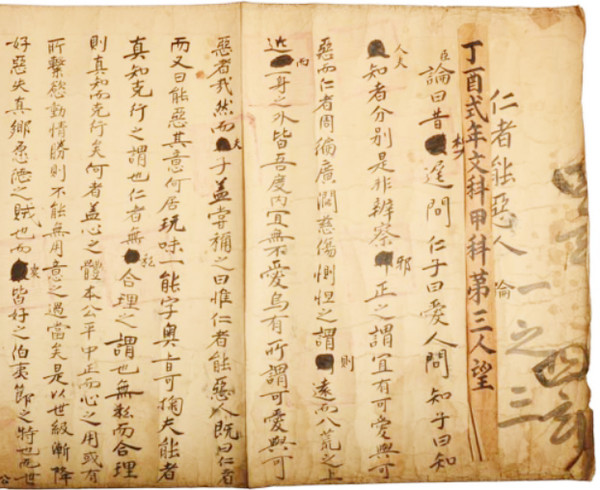 一之三
仁者能惡人論
丁酉式年文科甲科第三人望
臣論曰昔樊遲問仁子曰愛人問知子曰知
人夫知者分別是非辨察邪正之謂宜有可愛與可
惡而仁者周徧廣濶慈傷惻怛之謂則遠而八荒之上
近而一身之外皆吾度內宜無不愛烏有所謂可愛與可
惡者哉然而夫子盖嘗稱之曰惟仁者能惡人既曰仁者
而又曰能惡其意何居玩味一能字奧旨可掬夫能者
真知克行之謂也仁者無私合理之謂也無私而合理
則真知而克行矣何者盖心之體本公平中正而心之用或有
所繫慾動情勝則不能無用意之過當夫是以世級漸降
好惡失真鄉愿德之賊也而衆皆好之伯夷節之特也而世
公